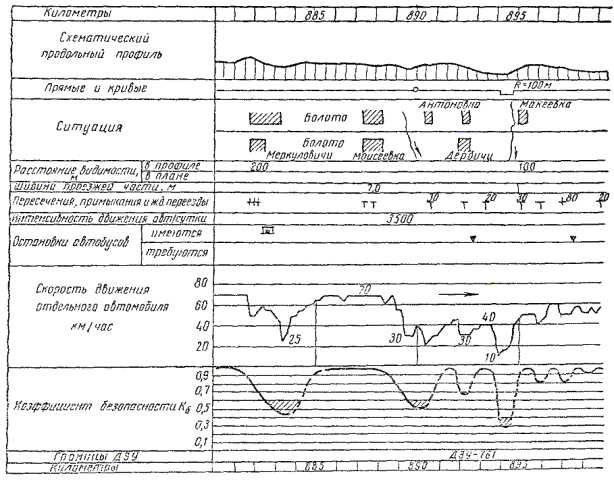 Километры 885 890 895
Схематический
продольный профиль
Прямые и кривые R=100м
Ситуация
Болото Антоновка Макеевка
Болото
Меркуловичи Моисеевка Дервичи
Расстояние видимости, м
в профиле 200 100
в плане
Ширина проезжей части, м 7,0
Пересечения, примыкания и жд переезды 20 30 80 20
Интенсивность движения авт/сутки 3500
Остановки автобусов
имеются
требуются
Скорость движения
отдельного автомобиля
км/час
80
60
40
20
70
25
30
30
40
10
Коэффициент безопасности Кб
0,9
0,7
0,5
0,3
0,1
Границы ДЭУ ДЭУ-761
Километры 885 890 895